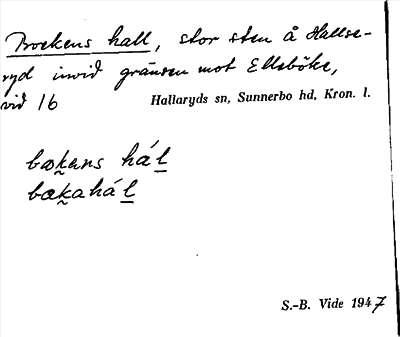 Bockens hall, stor sten å Hallse-
ryd invid gränsen mot Ellsböke,
vid 16
Hallaryds sn, Sunnerbo hd, Kron. l.
bœk̬ens hál̲
bœk̬ahál̲
S.-B. Vide 1947